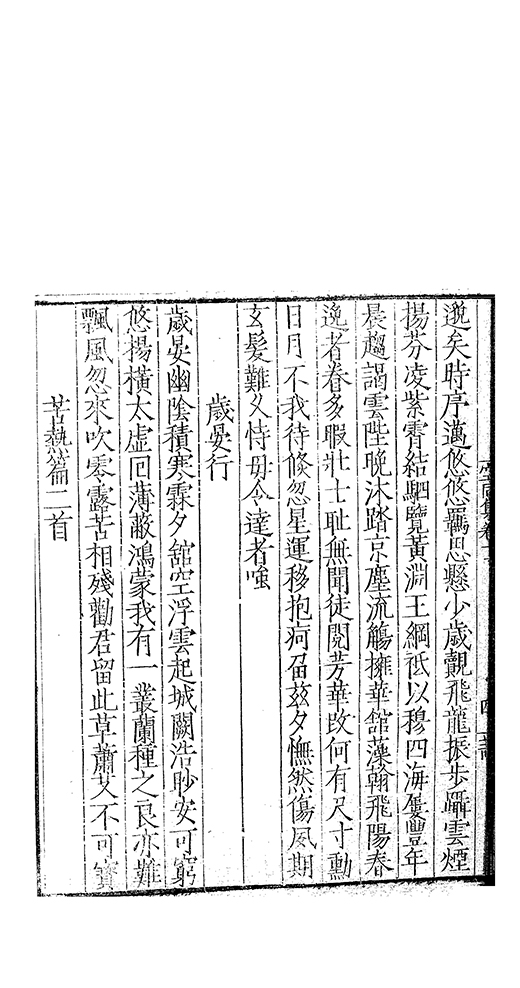 逖矣時序邁悠悠羈思懸少歲覿飛龍振步躡雲煙
揚芬凌紫霄結駟覽黃淵王綱祗以穆四海屢豐年
晨趨謁雲陛晚沐踏京塵流觴擁華館藻翰飛陽春
逸者眷多暇壯士耻無聞徒閱芳華改何有尺寸勳
日月不我待倏忽星運移抱痾畱茲夕憮然傷夙期
玄髮難久恃毋令達者嗤
歲晏行
歲晏幽陰積寒霖夕舘空浮雲起城闕浩眇安可窮
悠揚橫太虛囘薄蔽鴻蒙我有一叢蘭種之良亦難
飄風忽來吹零露苦相殘勸君留此草蕭艾不可寶
苦熱篇二首